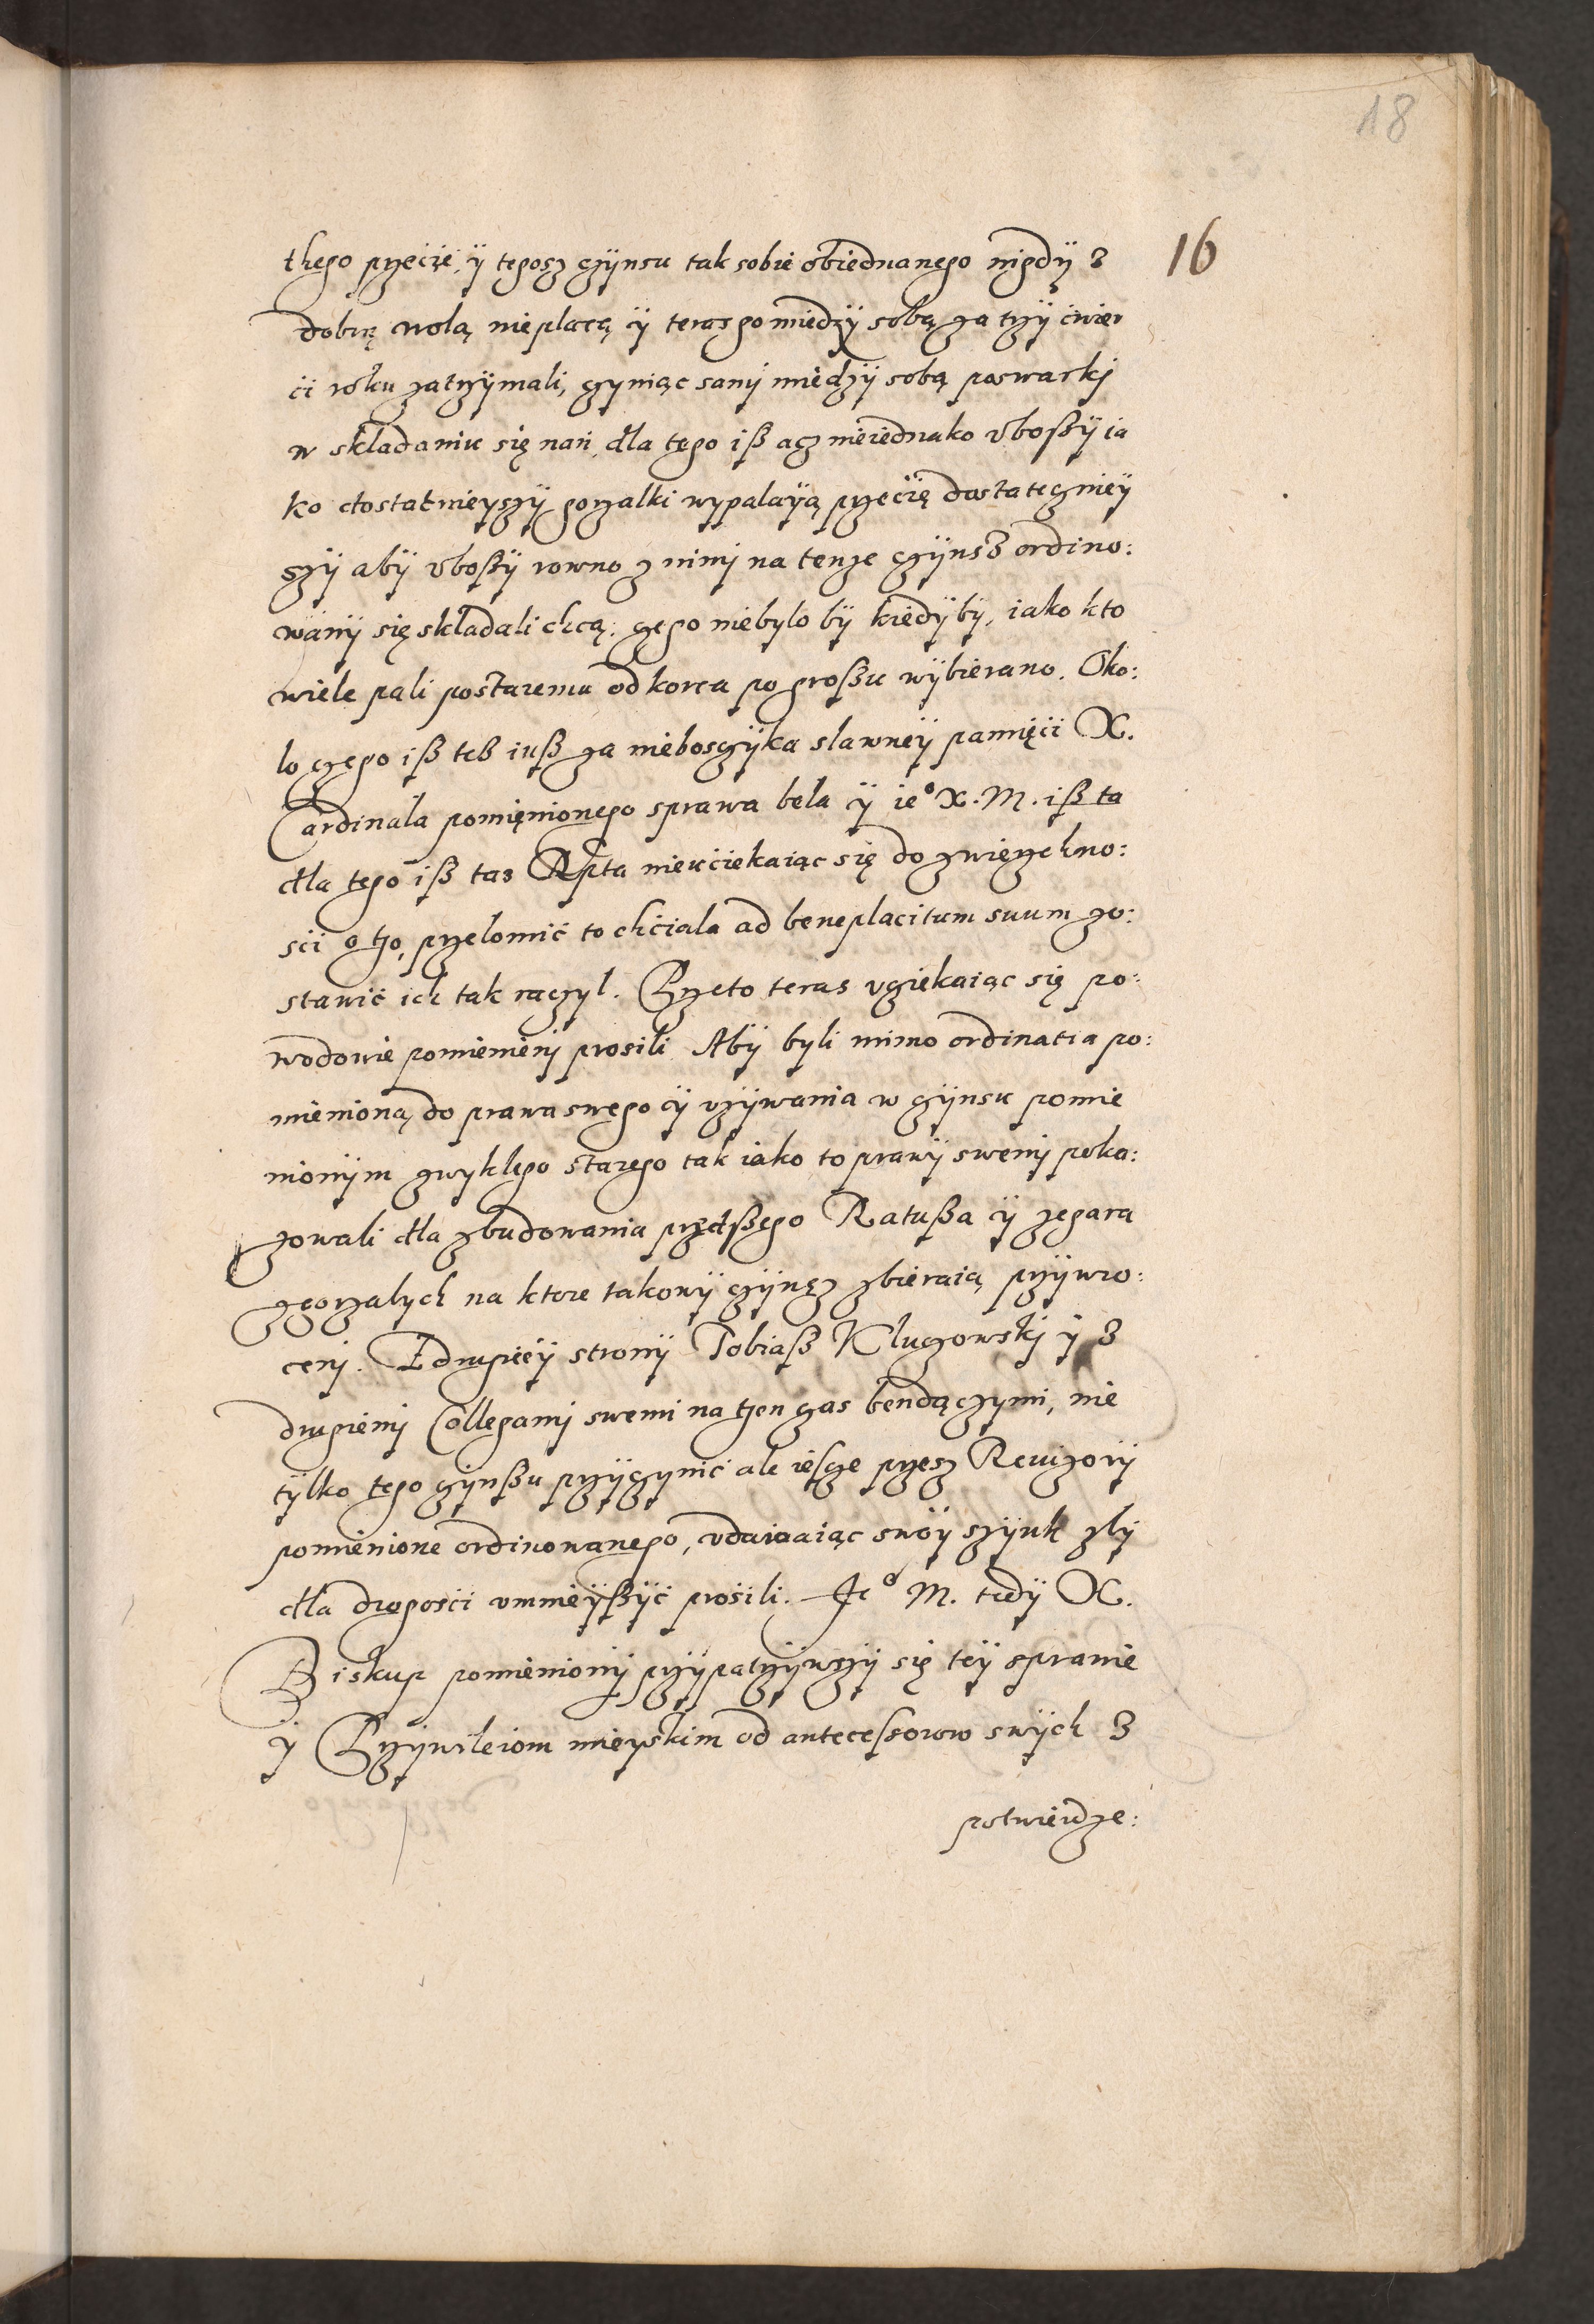 18
16
tkego przećię ÿ tegosz czÿnsu tak sobie obiednanego nigdÿ z
dobrą wolą nie płacą ÿ teras go miedzÿ sobą za trzÿ cwier
ci roku zatrzÿmali, czyniąc samj miedzÿ sobą poswarkj
w skladaniu się nań, dla tego iß acz nieiednako vboßÿ ia
ko dostatnieyszÿ gorzalki wypalaÿą przećię dostateczniey
szÿ abÿ vboßÿ rowno z nimj na tenze czÿnsz ordino:
wanÿ się składali chcą: czego niebylo bÿ kiedÿ by, iako kto
wiele pali postaremu od korca po großu wÿbierano. Oko:
lo czego iß teß iuß za nieboszczÿka slawneÿ pamięći X.
Cardinala pomięnionego sprawa bela ÿ ieº X. M. iß ta
dla tego iß tas Rpta nieućiekaiąc się do zwierzchno:
sći o to, przelomić to chćiala ad beneplacitum suum zo:
stawić ich tak raczyl. Przeto teras vciekaiąc się po:
wodowie pomienienj prosili Abÿ byli mimo ordinatia po:
mienioną do prawa swego ÿ vzÿwania w czÿnsu pomie
nionÿm zwyklego starego tak iako to prawÿ swemj poka:
zowali dla zbudowania przedßego Ratußa ÿ zegara
zgorzalych na ktore takowÿ czÿnsz zbieraią przÿwro:
cenj. Z drugieÿ stronÿ Tobiaß Kluczowskj ÿ z
drugiemj Collegamj swemi na tzen czas bendączymi, nie
tÿlko tego czÿnßu przÿczynić ale iescze przesz Rewizorÿ
pomienione ordinowanego, vdawaiąc swóy szÿnk zlÿ
dla drogośći vmnieÿßÿć prośili. Jeº M. tedÿ X.
Biskup pomienionÿ przÿpatrzÿwszÿ się teÿ sprawie
ÿ Przÿwileiom mieyskim od antecessorow swÿch z
potwierdze: